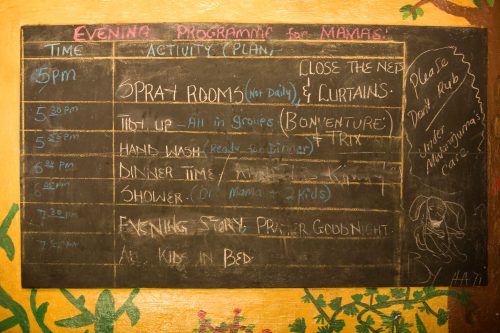 EVENING PROGRAMME for MAMAS!
TIME ACTIVITY (PLAN)
5pm CLOSE THE NED
SPRAY ROOMS (Not Daily) & CURTAINS.
5 30 pm TIDY UP - All in Groups (BONVENTURE)
+ TRIX
HAND WASH (Ready for Dinner)
DINNER TIME /
SHOWER. (1 Mama + 2 kids)
7 30 pm EVENING STORY, PRAYER GOODNIGHT.
ALL KIDS IN BED.
Please
Don't Rub
Under
Care
By